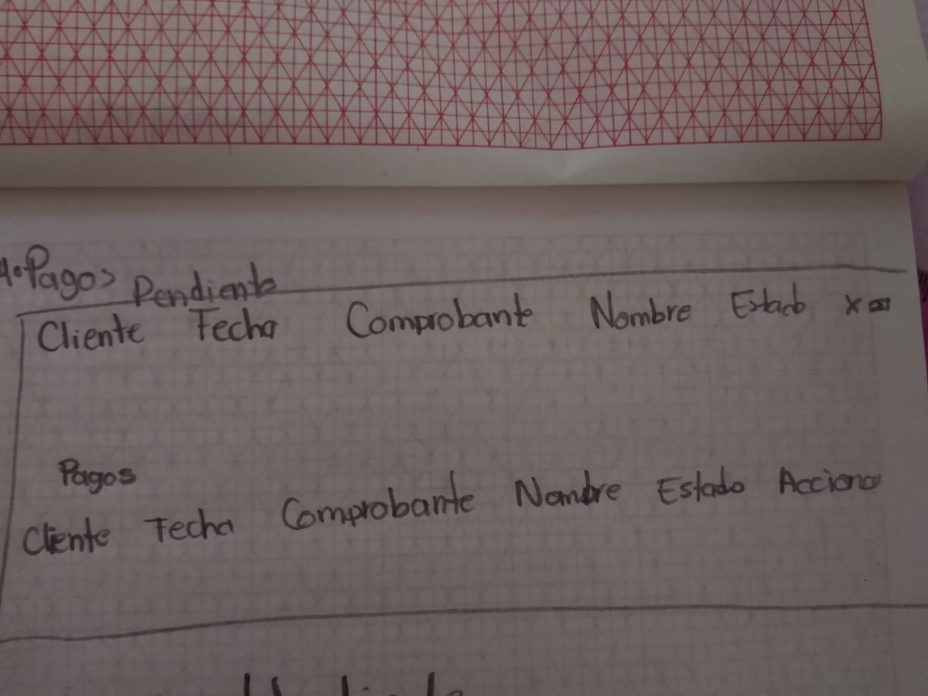 Pagos Pendiente
Cliente Fecha Comprobante Nombre Estado
Pagos
Cliente Fecha Comprobante Nombre Estado Acciono